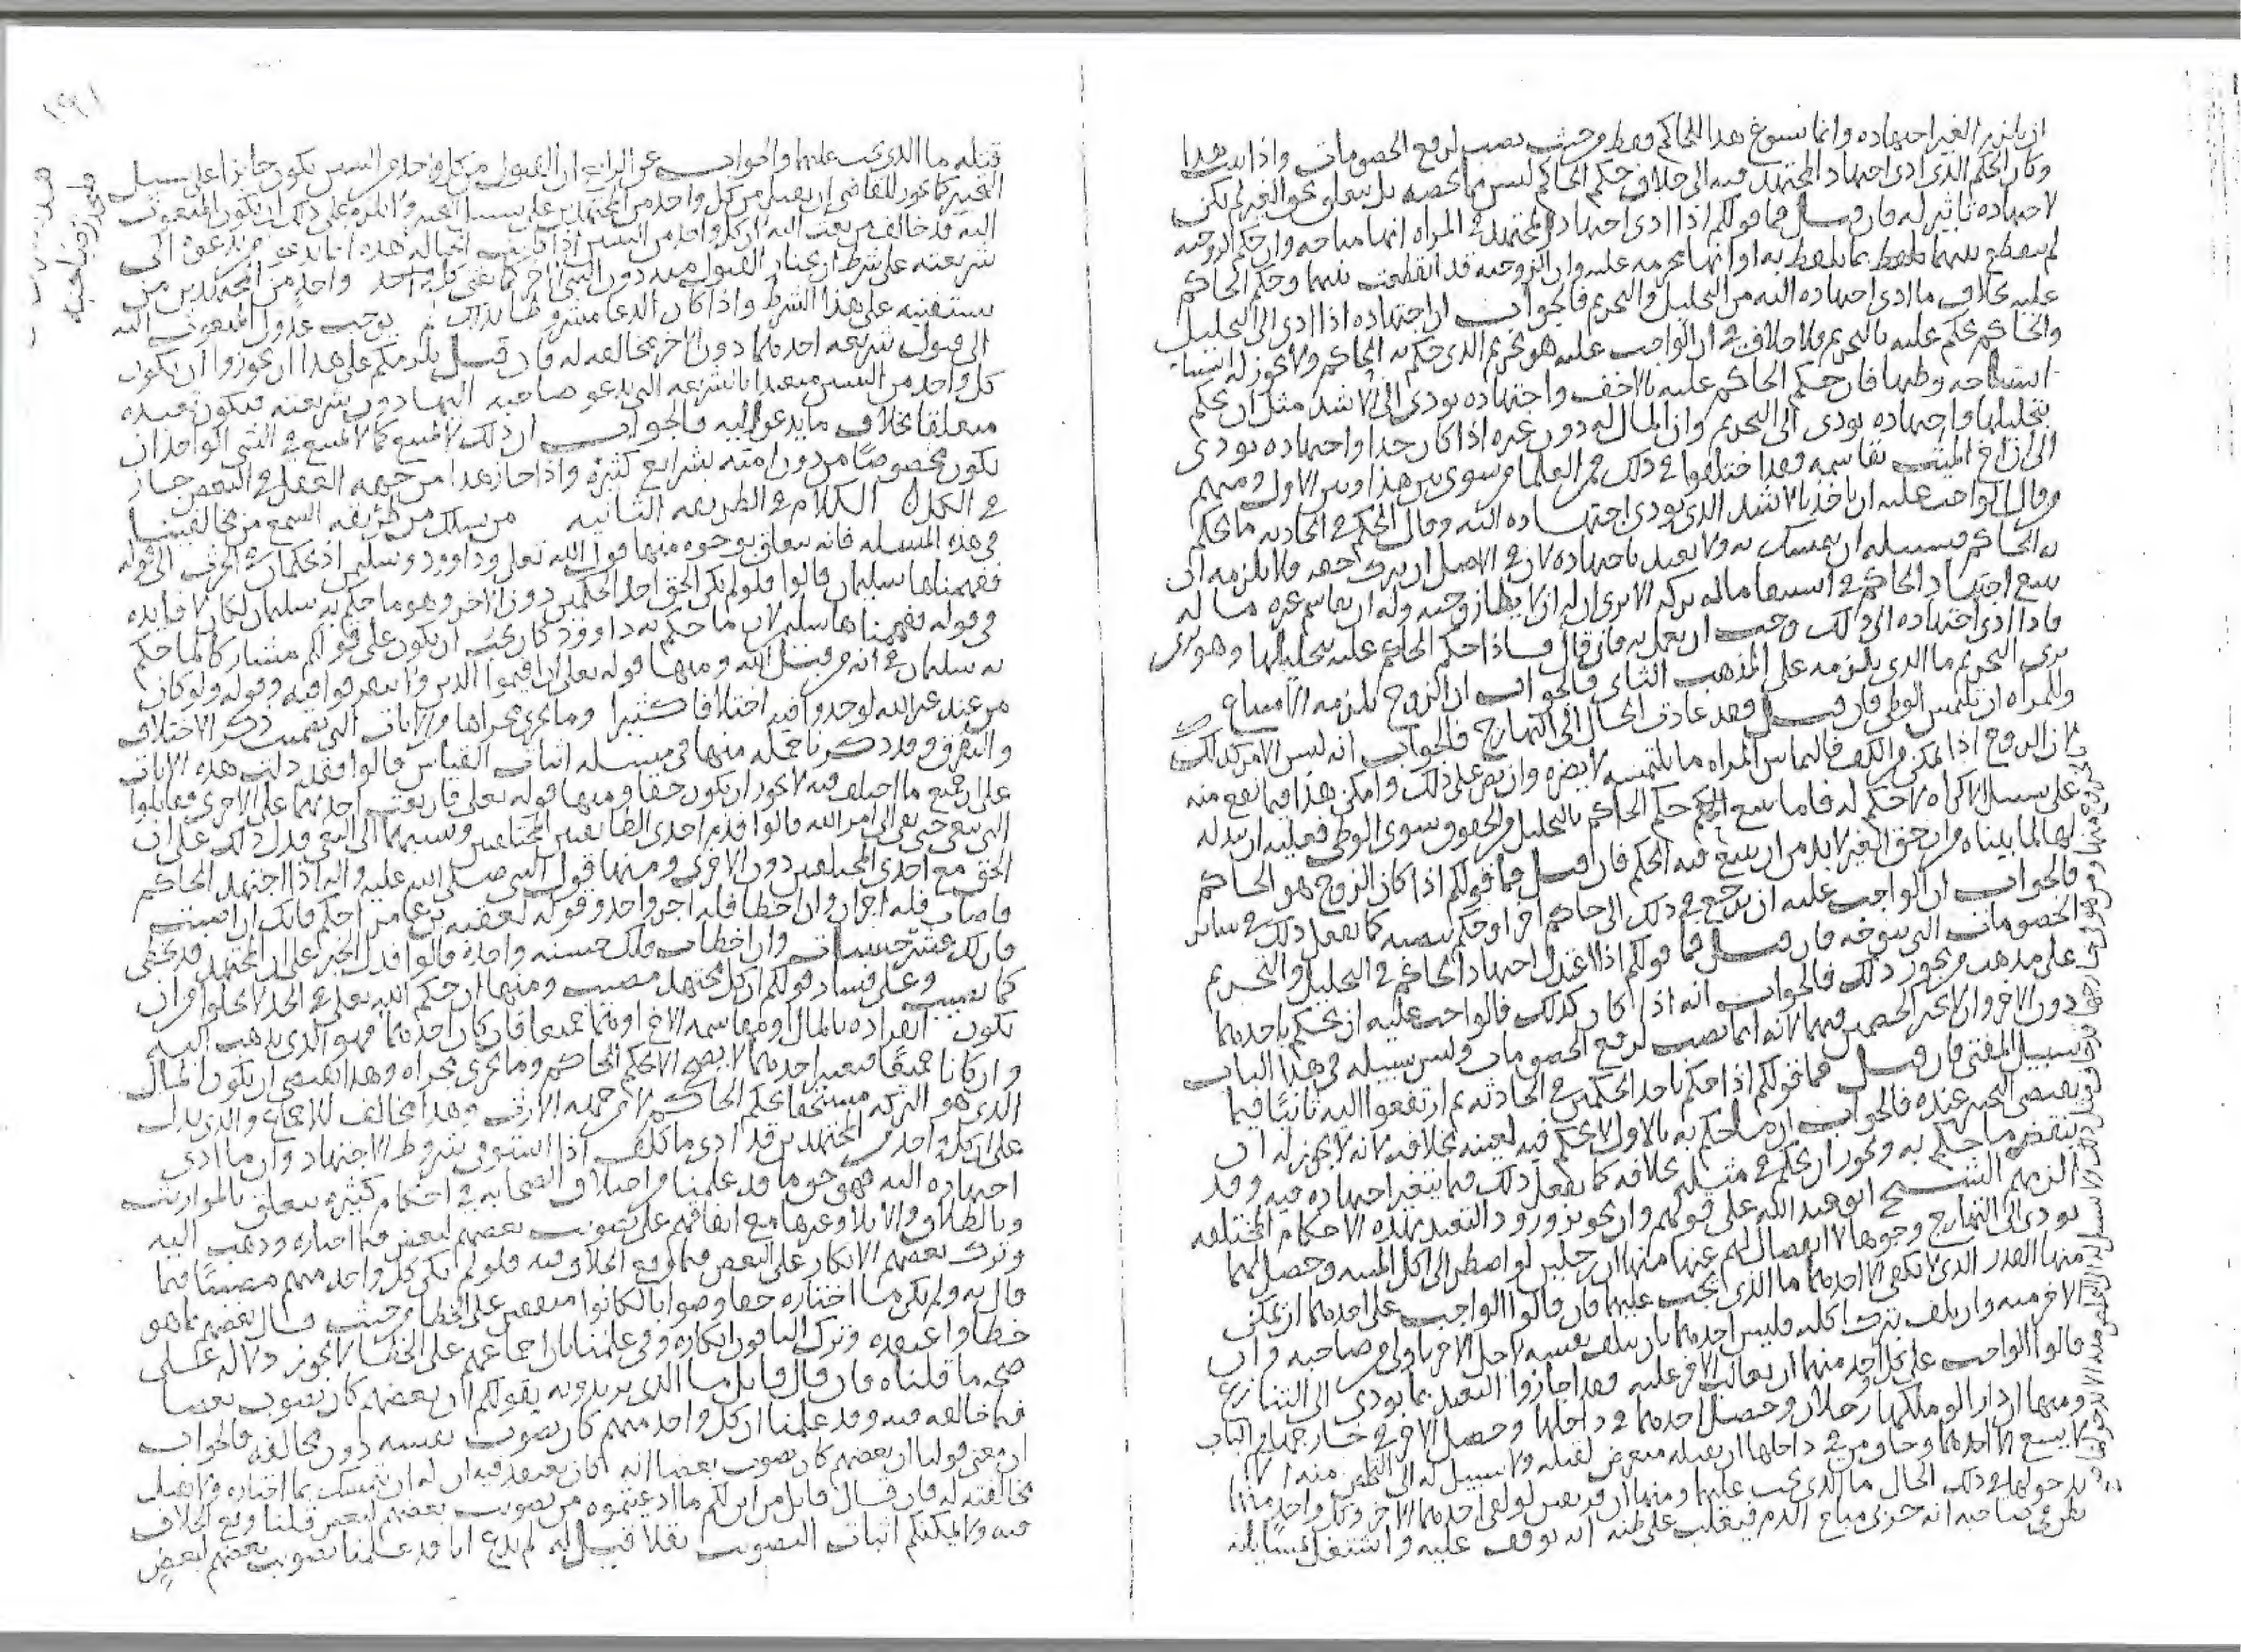 ان يلزم الغير اجتهاده وانما يسوغ هذا للحاكم فقط من حيث نصب لرفع الخصومات واذا ثبت هذا
وكان الحكم الذي ادى اجتهاد المجتهد فيه الى خلاف حكم الحاكم ليس مما يخصه بل يتعلق بحق الغير لم يكن
لاجتهاده تاثير له فان قيل فما قولكم اذا ادى اجتهاد المجتهد في المراه انها مباحه وان حكم الزوجيه
لم ينقطع بينهما بلفظ بما تلفظ به او انها محرمه عليه وان الزوجيه قد انقطعت بينهما وحكم الحاكم
عليه بخلاف ما ادى اجتهاده اليه من التحليل والتحريم فالجواب ان اجتهاده اذا ادى الى التحليل
والحاكم حكم عليه بالتحريم فلا خلاف في ان الواجب عليه هو تحريم الذي حكم به الحاكم ولا يجوز له
استباحه وطيها فان حكم الحاكم عليه بالاخف واجتهاده يودي الى الاشد مثل ان يحكم
بتحليلها واجتهاده يودي الى التحريم وان المال له دون غيره اذا كان جدا واجتهاده يودي
الى ان اخ الميت يقاسمه فقد اختلفوا في ذلك فمن العلما من سوى بين هذا وبين الاول ومنهم
من قال الواجب عليه ان ياخذ بالاشد الذي يودي اجتهاده اليه وقال الحكم في الحادثه ما يحكم
به الحاكم فسبيله ان يتمسك به ولا يعمل باجتهاده لان في الاصل ان يترك حقه فلا يلزمه ان
يتبع اجتهاد الحاكم في استيفا ماله تركه الا ترى ان له ان لا يطا زوجته وله ان يقاسم غيره ماله
فاذا ادى اجتهاده الى ذلك وجب ان يعمل به فان قال فاذا حكم الحاكم عليه بتحليلها وهو يرى
يرى التحريم ما الذي يلزمه على المذهب الثاني فالجواب ان الزوج يلزمه الامتناع
وللمراه ان تلتمس الوطي فان قيل فقد عادت الحال الى التهارج فالجواب انه ليس الامر كذلك
لان الزوج اذا لم يكن فالتماس المراه ما تلتمسه لا يضره وان على ذلك وامكن هذا فيما يقع منه
على سبيل الاكراه لا حكم له فاما حكم الحاكم بالتحليل والحقوق سوى الوطي فعليه ان يبذله
لها لما بيناه من ان حق الغير لابد من ان يتبع فيه الحكم فان قيل فما قولكم اذا كان الزوج هو الحاكم
فالجواب ان الواجب عليه ان يرجع في ذلك الى حاكم اخر او حكم كما يفعل ذلك في سائر
الخصومات التي فان قيل فما قولكم اذا اعتدل اجتهاد الحاكم في التحليل والتحريم
على مذهب من يجوز ذلك فالجواب انه اذا كان كذلك فالواجب عليه ان يحكم باحدهما
دون الاخر ولا يخير الخصمين فيهما لانه انما نصب لرفع الخصومات وليس سبيله في هذا الباب
سبيل المفتي فان قيل فما قولكم اذا حكم باحد الحكمين في الحادثه ثم ارتفعوا اليه ثانيا فيما
يقتضي التخيير عنده فالجواب ان ما حكم به بالاول لا يحكم فيه بعينه بخلافه لانه لا يجوز له ان
ينقض ما حكم به ويجوز ان يحكم في مثله بخلافه كما يفعل ذلك فيما يتغير اجتهاده فيه وقد
الزمهم الشيخ ابو عبد الله على قولهم وان تجويز ورود التعبد بهذه الاحكام المختلفه
يودي الى التهارج وجوها لا انفصال لهم عنها منها ان رجلين لو اضطرا الى اكل الميته وحصل لهما
منها القدر الذي لا يكفي الا احدهما ما الذي يجب عليهما فان قالوا الواجب على احدهما ان يمكن
الاخر منه وان يتلف بترك اكله فليس احدهما بان يتلف نفسه لاجل الاخر باولى من صاحبه وان
قالوا الواجب على كل واحد منهما ان يغالب الاخر عليه فقد اجازوا التعبد بما يودي الى التنازع
ومنها ان دارا لو ملكها رجلان وحصل احدهما في داخلها وحصل الاخر في خارجها والباب
لا يسع الا احدهما وخاف من في داخلها ان يقتله متعرض لقتله ولا سبيل له الى التخلص منه الا
بدخولهما في ذلك الحال ما الذي يجب عليهما ومنها ان نفسين لو لقي احدهما الاخر وكل واحد منهما
يظن في صاحبه انه حربي مباح الدم فيغلب على ظنه انه توقف عليه واشتغل
٢٩١
قتله ما الذي يجب عليهما والجواب عن الرابع ان القبول من كل واحد من النبيين يكون جائزا على سبيل
التخيير كما يجوز للقاضي ان يقبل من كل واحد من المجتهدين على سبيل التخيير ولا يلزم على ذلك ان يكون المبعوث
اليه قد خالف من بعث اليه لان كل واحد من النبيين اذا كانت الحاله هذه انما يدعو من يدعوه الى
شريعته على شرط ان يختار القبول منه دون النبي الاخر كما يفتي كل واحد من المجتهدين من
يستفتيه على هذا الشرط واذا كان الدعا مشروطا بذلك لم يوجب عدول المبعوث اليه
الى قبول شريعه احدهما دون الاخر مخالفه له فان قيل يلزمكم على هذا ان تجوزوا ان يكون
كل واحد من النبيين متعبدا بالشريعه التي يدعو صاحبه اليها دون شريعته فيكون تعبده
متعلقا بخلاف ما يدعو اليه فالجواب ان ذلك لا يمتنع كما لا يمتنع في النبي الواحد ان
يكون مخصوصا من دون امته بشرايع كثيره واذا جاز هذا من جهه العقل في البعض جاز
في الكل الكلام في الطريقه الثانيه من يسلك من طريقه السمع من مخالفينا
في هذه المسله فانه يتعلق بوجوه منها قول الله تعالى وداوود وسليمن اذ يحكمان في الحرث الى قوله
ففهمناها سليمان قالوا فلو لم يكن الحق احد الحكمين دون الاخر وهو ما حكم به سليمان لكان لا فايده
في قوله ففهمناها سليمن لان ما حكم به داوود كان يجب ان يكون على قولكم مشاركا لما حكم
به سليمان في انه من قبل الله ومنها قوله تعالى ان اقيموا الدين ولا تتفرقوا فيه وقوله ولو كان
من عند غير الله لوجدوا فيه اختلافا كثيرا وما يجري مجراها من الايات التي تضمنت ذكر الاختلاف
والتفرق وقد ذكرنا جمله منها في مسله اثبات القياس قالوا فقد دلت هذه الايات
على ان جميع ما اختلف فيه لا يجوز ان يكون حقا ومنها قوله تعالى فان بغت احداهما على الاخرى فقاتلوا
التي تبغي حتى تفي الى امر الله قالوا فذم احدى الطايفتين المختلفتين ونسبها الى البغي فدل ذلك على ان
الحق مع احدى المختلفتين دون الاخرى ومنها قول النبي صلى الله عليه واله اذا اجتهد الحاكم
فاصاب فله اجران وان اخطا فله اجر واحد وقوله لعقبه بن عامر احكم فانك ان اصبت
فان لك عشر حسنات وان اخطات فلك حسنه واحده قالوا فدل الخبر على ان المجتهد قد يخطي
كما يصيب وعلى فساد قولكم ان كل مجتهد مصيب ومنها ان حكم الله تعالى في الجد لا يخلوا من ان
يكون انفراده بالمال او مقاسمه الاخ او هما جميعا فان كان احدهما فهو الذي يذهب اليه
وان كانا جميعا فتعيين احدهما لا يصح الا بحكم الحاكم وما يجري مجراه وهذا يقتضي ان يكون المال
الذي هو التركه مستحقا بحكم الحاكم لا من جهه الارث وهذا مخالف للاجماع والذي يدل
على ان كل واحد من المجتهدين قد ادى ما كلف اذا استوفى شروط الاجتهاد وان ما ادى
اجتهاده اليه فهو حق ما قد علمنا من اختلاف الصحابه في احكام كثيره يتعلق بالمواريث
وبالطلاق والايلا وغيرها مع اتفاقهم على تصويب بعضهم لبعض فيما اختاره وذهب اليه
وترك بعضهم الانكار على البعض فيما وقع الخلاف فيه فلو لم يكن كل واحد منهم مصيبا فيما
قال به ولم يكن ما اختاره حقا وصوابا لكانوا متفقين على الخطا من حيث قال بعضهم بما هو
خطا واعتقده وترك الباقون انكاره وفي علمنا بان اجماعهم على الخطا لا يجوز دلاله على
صحه ما قلناه فان قال قايل ما الذي تريدونه بقولكم ان بعضهم كان يصوب بعضا
فيما خالفه فيه وقد علمنا ان كل واحد منهم كان يصوب نفسه دون مخالفه فالجواب
ان معنى قولنا ان بعضهم كان يصوب بعضا انه كان يعتقد فيه ان له ان يتمسك بما اختاره
مخالفته له فان قال قايل من اين لكم ما ادعيتموه من تصويب بعضهم لبعض قلنا وقع الخلاف
فيه ولا يمكنكم اثبات التصويب نقلا قيل له لم ندع انا قد علمنا تصويب بعضهم لبعض